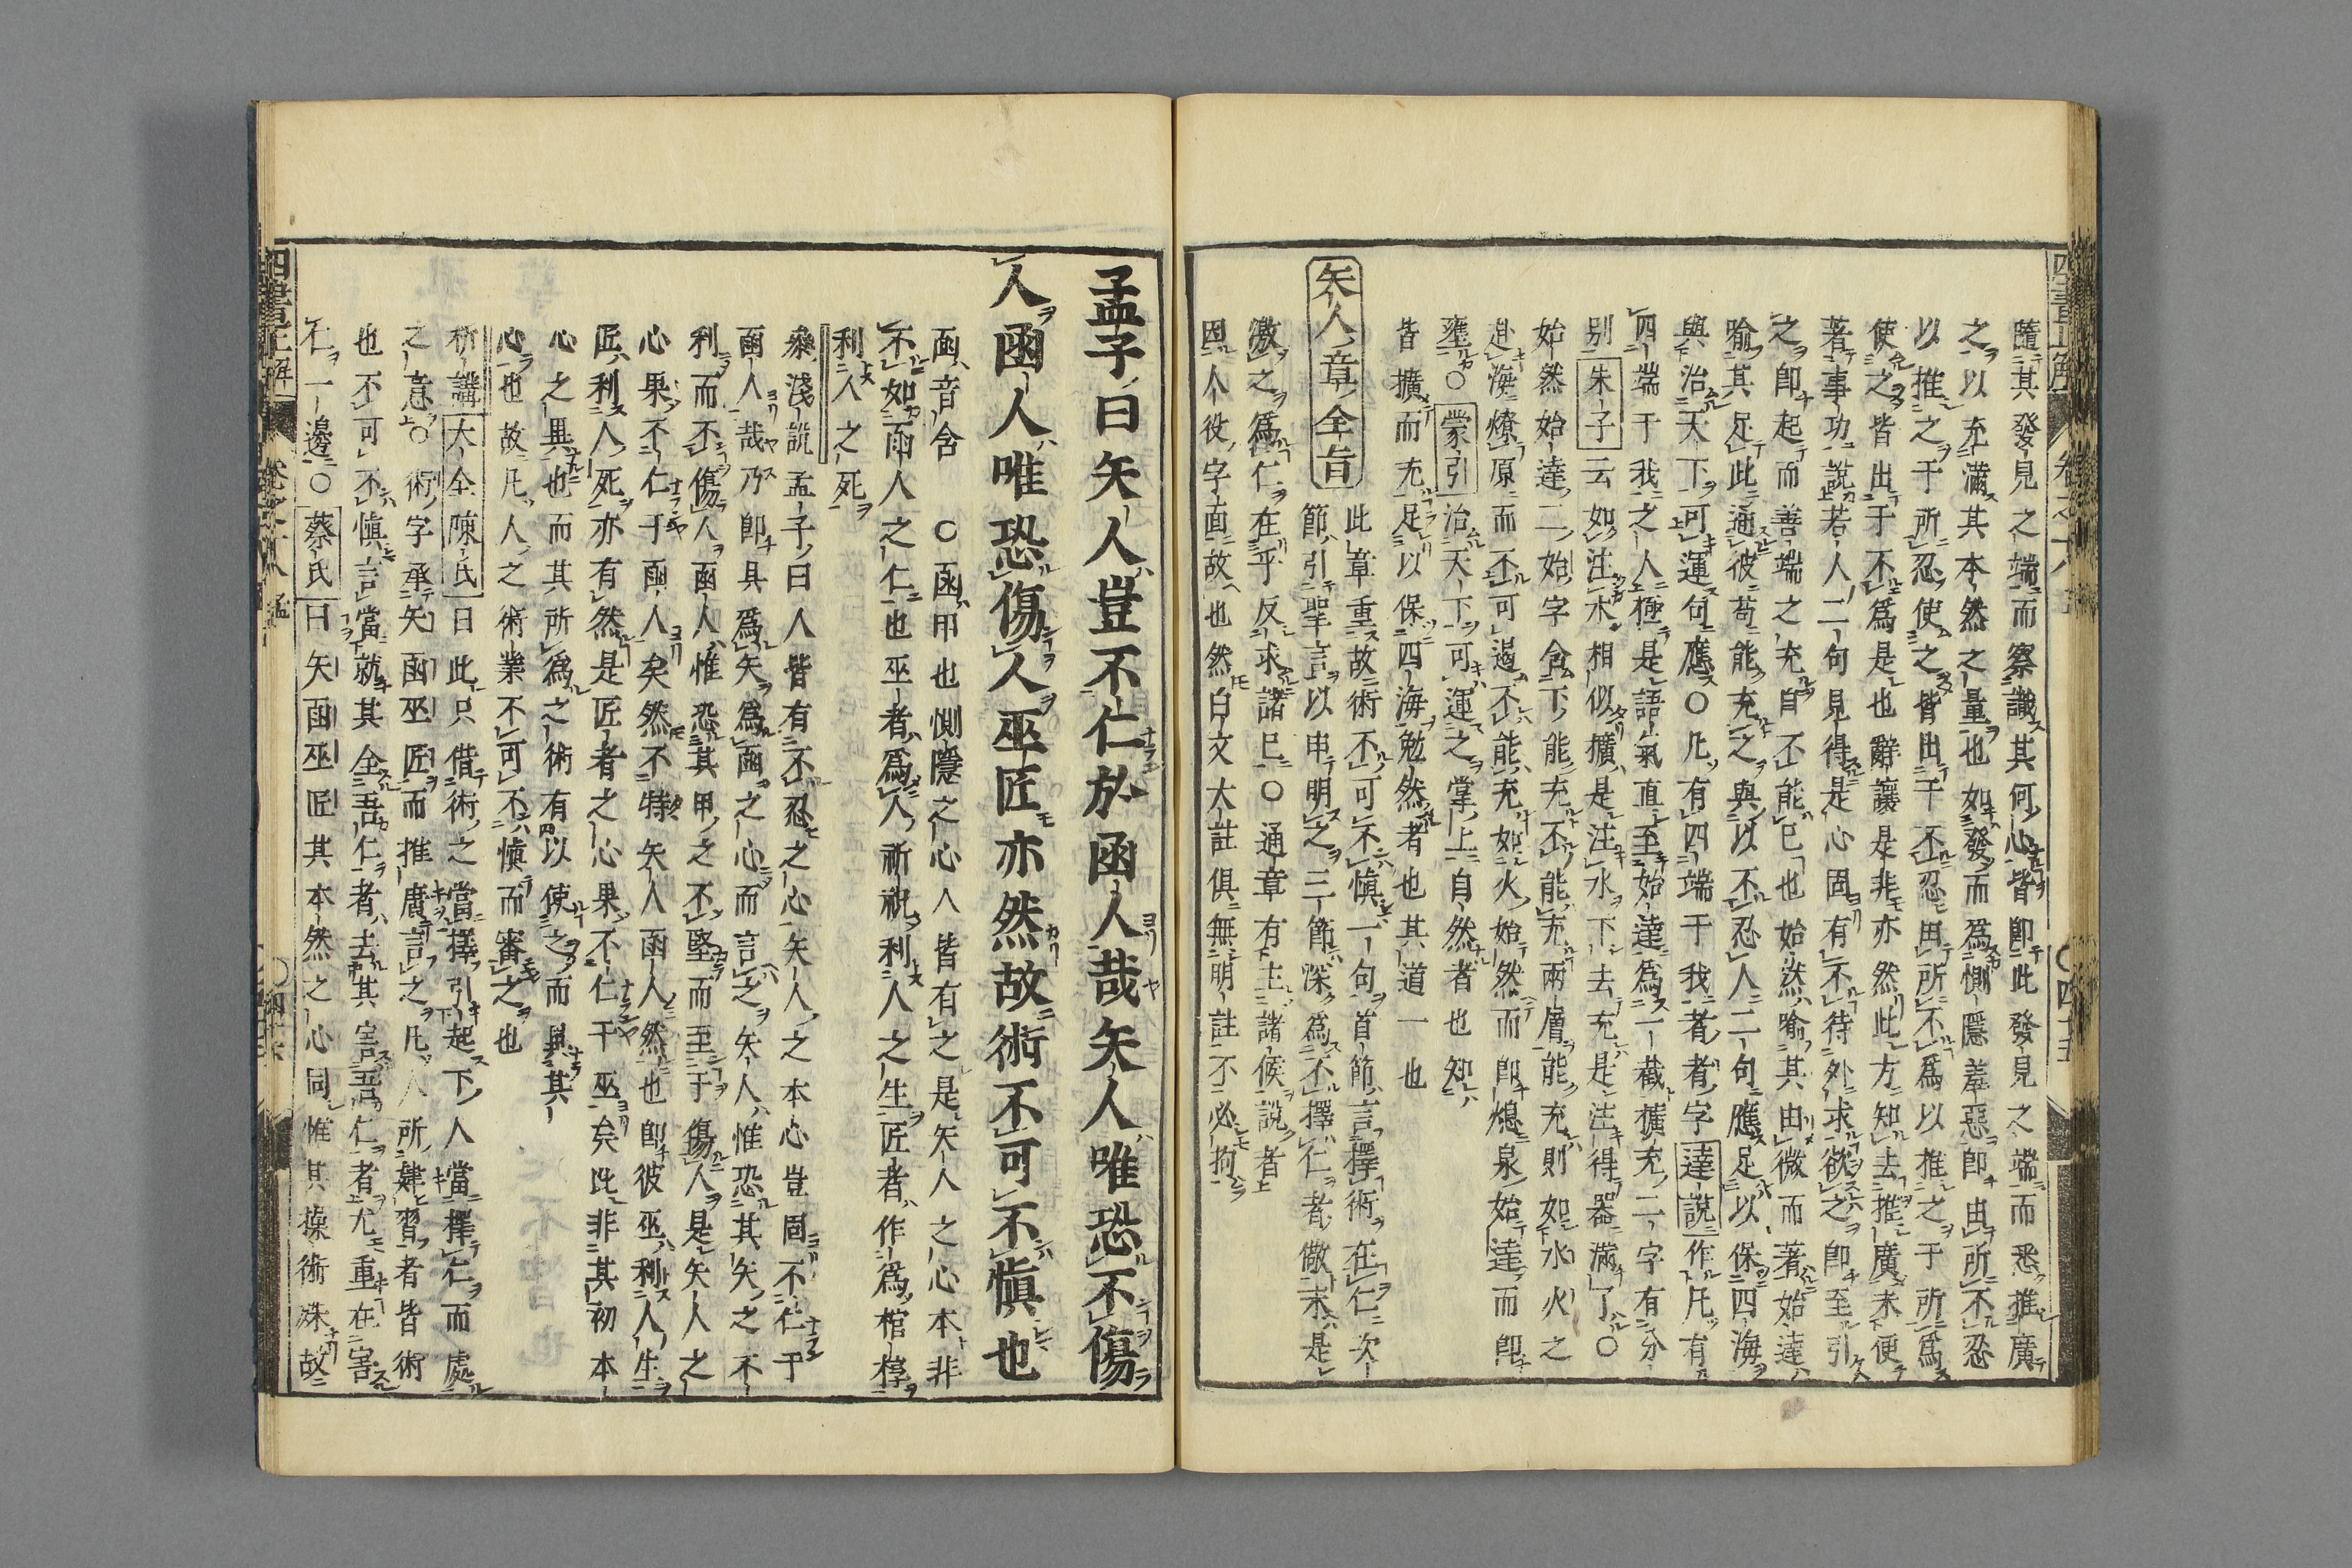 隨其發見之端而察識其何心皆卽此發見之端而悉推廣
之以充滿其本然之量也如發而爲惻隱羞惡卽由所不忍
以推之于所忍使之皆出于不忍由所不爲以推之于所爲
使之皆出于不爲是也辭讓是非亦然此方知去推廣未便
著事功說若人二句見得是心固有不待外求欲之卽至引
之卽起而善端之充自不能已也始然喻其由微而著始達
喻其足此通彼苟能充之與以不忍人二句應足以保四海
與治天下可運句應○凡有四端于我者者字達說作凡有
四端于我之人極是語氣直至始達爲一截擴充二字有分
別朱子云如注水相似擴是注水下去充是注得器滿了○
始然始達二始字含下能充不能充兩層能充則如水火之
赴海燎原而不可遏不能充如火始然而卽熄泉始達而卽
壅○蒙引治天下可運之掌上自然者也知
皆擴而充足以保四海勉然者也其道一也
矢人章全旨
此章重故術不可不愼一句首節言擇術在仁次
節引聖言以申明之三節深爲不擇仁者儆末是
激之爲仁在乎反求諸己○通章有主諸侯說者上
因人役字面故也然白文大註俱無明註不必拘
孟子曰矢人豈不仁於函人哉矢人唯恐不傷
人函人唯恐傷人巫匠亦然故術不可不愼也
函音含　○函甲也惻隱之心人皆有之是矢人之心本非
不如函人之仁也巫者爲人祈祝利人之生匠者作爲棺椁
利人之死
㕘淺說孟子曰人皆有不忍之心矢人之本心豈固不仁于
函人哉乃卽具爲矢爲函之心而言之矢人惟恐其矢之不
利而不傷人函人惟恐其甲之不堅而至于傷人是矢人之
心果不仁于函人矣然不特矢人函人然也卽彼巫利人生
匠利人死亦有然是匠者之心果不仁于巫矣此非其初本
心之異也而其所爲之術有以使之而異其
心也故凡人之術業不可不愼而審之也
析講大全陳氏曰此只借術之當擇引起下人當擇仁而處
之意○術字承矢函巫匠而推廣言之凡人所肄習者皆術
也不可不愼言當就其全吾仁者去其害吾仁者尤重在害
仁一邊○蔡氏曰矢函巫匠其本然之心同惟其操術殊故